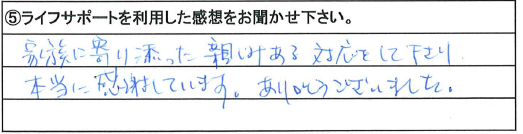 ⑤ライフサポートを利用した感想をお聞かせ下さい。
家族に寄り添った親しみある対応をして下さり
本当に感謝しています。ありがとうございました。